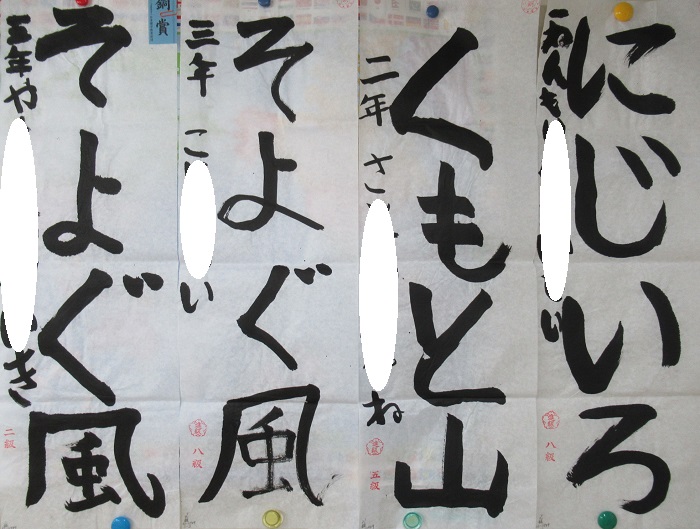 にじいろ
くもと山
二年
さ
ね
八級
そよぐ風
三年
こ
い
五級
そよぐ風
三年や
いき
八級
銅賞
二級